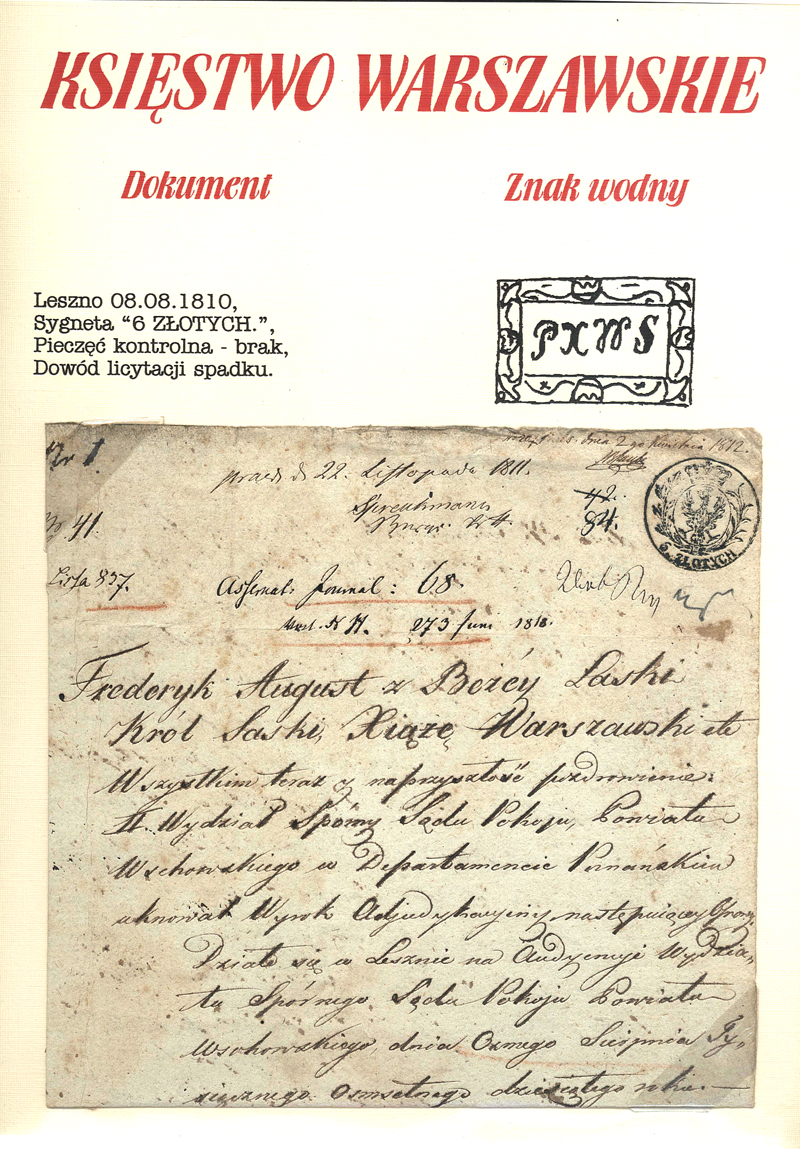 KSIĘSTWO WARSZAWSKIE
Dokument
Znak wodny
Leszno 08.08.1810,
Sygneta “6 ZŁOTYCH.”,
Pieczęć kontrolna - brak,
Dowód licytacji spadku.
PXWS
dnia 2-go Kwietnia 1812.
Nr 1
d 22. Listopada 1811.
42.
84.
6. ZŁOTYCH
41.
Lista 837.
Journal: 68
273 Juni 1818.
Frederyk August z Bożéy Laski
Król Saski, Xiążę Warszawski etc
Wszystkim teraz y naprzyszłość pozdrowienie:
II. Wydział Spórny Sądu Pokoju, Powiatu
Wschowskiego w Departamencie Poznańskim
Wyrok Adjudykacyiny następuiący
Działo się w Lesznie na Audyencyi Wydzia,
łu Spórnego Sądu Pokoju Powiatu
Wschowskiego, dnia Osmego Sierpnia Ty,
siącznego osmsetnego dziesiątego roku.—